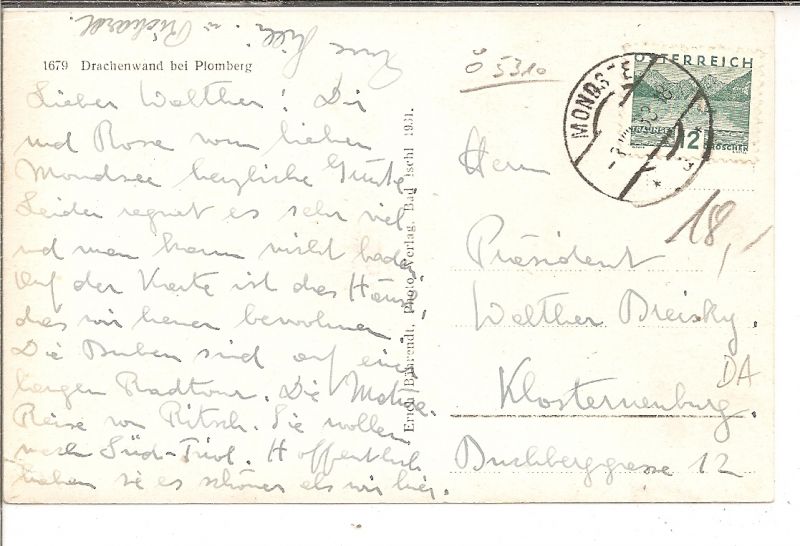 Eure Lilli u. Richard.
1679 Drachenwand bei Plomberg
Lieber Walther! Dir
und Rose vom lieben
Mondsee herzliche Grüße
Leider regnet es sehr viel
und man kann nicht baden
Auf der Karte ist das Haus,
das wir heuer bewohnen.
Die Buben sind auf einer
langen Radtour. Die
Reise von Pritsch. Sie wollen
nach Süd-Tirol. Hoffentlich
haben sie es schöner als wir hier.
Erich Bährendt, Photo-Verlag, Bad Ischl 1931.
Ö 5310
ÖSTERREICH
TRAUNSEE
12 GROSCHEN
MONDSEE
18,-
Herrn
Präsident
Walther Breisky.
DA
Klosterneuburg.
Buchberggasse 12